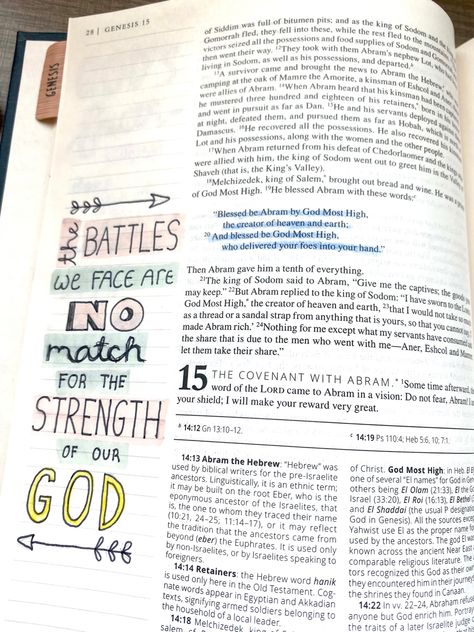 28 | GENESIS 15
GENESIS
the
BATTLES
we FACE ARE
NO
match
FOR THE
STRENGTH
OF OUR
GOD
of Siddim was full of bitumen pits; and as the king of Sodom and
Gomorrah fled, they fell into these, while the rest fled to the
victors seized all the possessions and food supplies of Sodom and
then went their way. 12They took with them Abram's nephew Lot, who
living in Sodom, as well as his possessions, and departed.
13A survivor came and brought the news to Abram the Hebrew,
camping at the oak of Mamre the Amorite, a kinsman of Eshcol and
were allies of Abram. 14When Abram heard that his kinsman had been
he mustered three hundred and eighteen of his retainers, born in
and went in pursuit as far as Dan. 15He and his servants deployed against
at night, defeated them, and pursued them as far as Hobah, which
Damascus. 16He recovered all the possessions. He also recovered his
Lot and his possessions, along with the women and the other people.
17When Abram returned from his defeat of Chedorlaomer and the kings
were allied with him, the king of Sodom went out to greet him in the
Shaveh (that is, the King's Valley).
18Melchizedek, king of Salem, brought out bread and wine. He was a
of God Most High. 19He blessed Abram with these words:c
"Blessed be Abram by God Most High,
the creator of heaven and earth;
20And blessed be God Most High,
who delivered your foes into your hand."
Then Abram gave him a tenth of everything.
21The king of Sodom said to Abram, "Give me the captives; the goods
may keep." 22But Abram replied to the king of Sodom: "I have sworn to the
God Most High,* the creator of heaven and earth, 23that I would not take
as a thread or a sandal strap from anything that is yours, so that you cannot
made Abram rich.' 24Nothing for me except what my servants have consumed
the share that is due to the men who went with me—Aner, Eshcol and
let them take their share."
15 THE COVENANT WITH ABRAM.* 1Some time afterward, the
word of the LORD came to Abram in a vision: Do not fear, Abram!
your shield; I will make your reward very great.
b 14:12 Gn 13:10–12.
c 14:19 Ps 110:4; Heb 5:6, 10; 7:1;
14:13 Abram the Hebrew: "Hebrew" was
used by biblical writers for the pre-Israelite
ancestors. Linguistically, it is an ethnic term;
it may be built on the root Eber, who is the
eponymous ancestor of the Israelites, that
is, the one to whom they traced their name
(10:21, 24–25; 11:14–17), or it may reflect
the tradition that the ancestors came from
beyond (eber) the Euphrates. It is used only
by non-Israelites, or by Israelites speaking to
foreigners.
14:14 Retainers: the Hebrew word hanik
is used only here in the Old Testament. Cog-
nate words appear in Egyptian and Akkadian
texts, signifying armed soldiers belonging to
the household of a local leader.
14:18 Melchizedek, king of
salem
of Christ. God Most High: in Heb. El
one of several "El names" for God in
others being El Olam (21:33), El the
Israel (33:20), El Roi (16:13), El Bethel
and El Shaddai (the usual P designation
God in Genesis). All the sources except
Yahwist use El as the proper name for
used by the ancestors. The god El was
known across the ancient Near East
comparable religious literature. The
tors recognized this God as their own
they encountered him in their journeys
the shrines they found in Canaan.
14:22 In vv. 22–24, Abraham refuses
anyone but God enrich him. Portray
the traits of a later Israelite judge